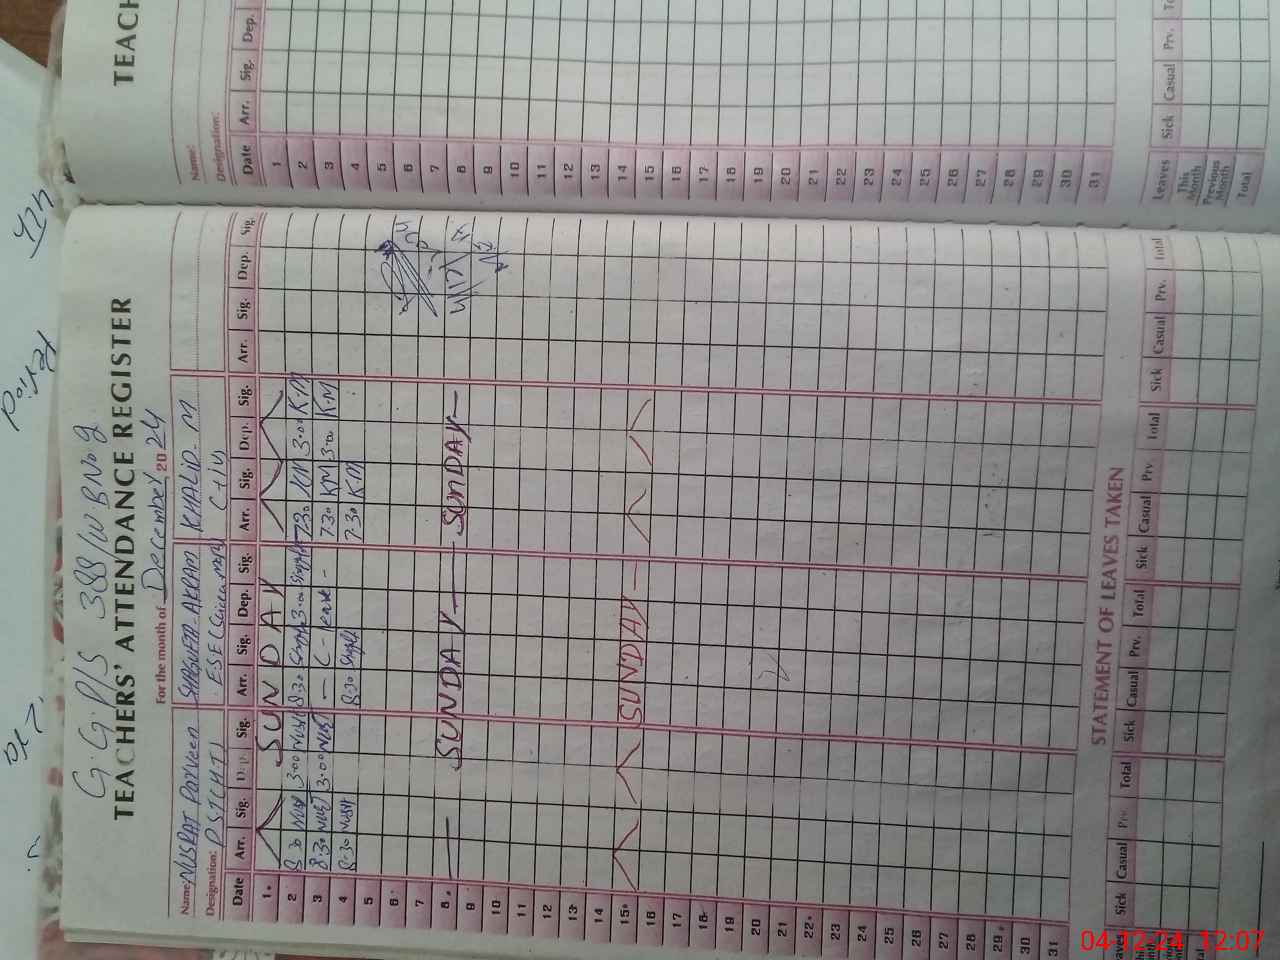 G.G.P/S 388/W B No 9
TEACHERS' ATTENDANCE REGISTER
For the month of December 2024
Name: NUSRAT Parveen SHAGUFTA AKRAM KHALID. M
Designation: PST(HT) ESE(Science) C-IV
Date Arr. Sig. Dep. Sig. Arr. Sig. Dep. Sig. Arr. Sig. Dep. Sig. Arr. Sig. Dep. Sig.
1 SUNDAY
2 8.30 3.00 8.30 3.00 7.30 KM 3.00 K.M
3 8.30 3.00 — C - Leave - 7.30 KM 3.00 K.M
4 8.30 8.30 7.30 K.M
5
6
7
8 SUNDAY SUNDAY
9
10
11
12
13
14
15 SUNDAY
16
17
18
19
20
21
22
23
24
25
26
27
28
29
30
31
STATEMENT OF LEAVES TAKEN
Leaves Sick Casual Prv. Total Sick Casual Prv. Total Sick Casual Prv. Total Sick Casual Prv. Total
TEACH
Name:
Designation:
Date Arr. Sig. Dep.
1
2
3
4
5
6
7
8
9
10
11
12
13
14
15
16
17
18
19
20
21
22
23
24
25
26
27
28
29
30
31
Leaves Sick Casual Prv. To
This Month
Previous Month
Total
Period
04-12-24 12:07